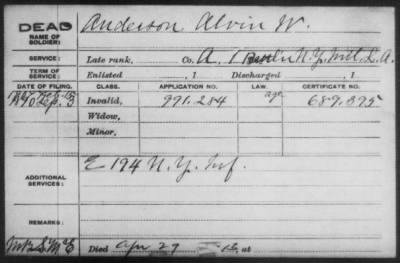 DEAD
NAME OF SOLDIER:
Anderson, Alvin W.
SERVICE:
Late rank, Co. A, 1 Battn N.Y. Mtd. L. A.
TERM OF SERVICE:
Enlisted , 1 Discharged , 1
DATE OF FILING. CLASS. APPLICATION NO. LAW. CERTIFICATE NO.
Sep. 3 Invalid, 991.284 age 689.395
Widow,
Minor,
ADDITIONAL SERVICES:
E 194 N.Y. Inf.
REMARKS:
Died Apr 27 at